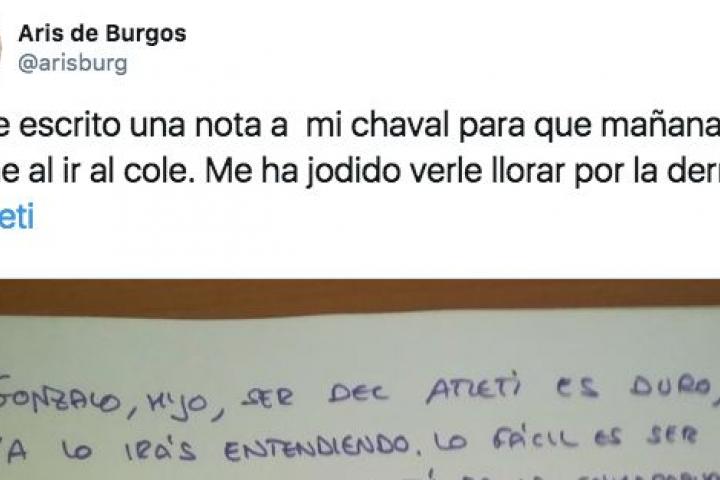 Aris de Burgos
@arisburg
e escrito una nota a mi chaval para que mañana
e al ir al cole. Me ha jodido verle llorar por la derr
eti
GONZALO, HIJO, SER DEL ATLETI ES DURO,
YA LO IRÁS ENTENDIENDO. LO FÁCIL ES SER